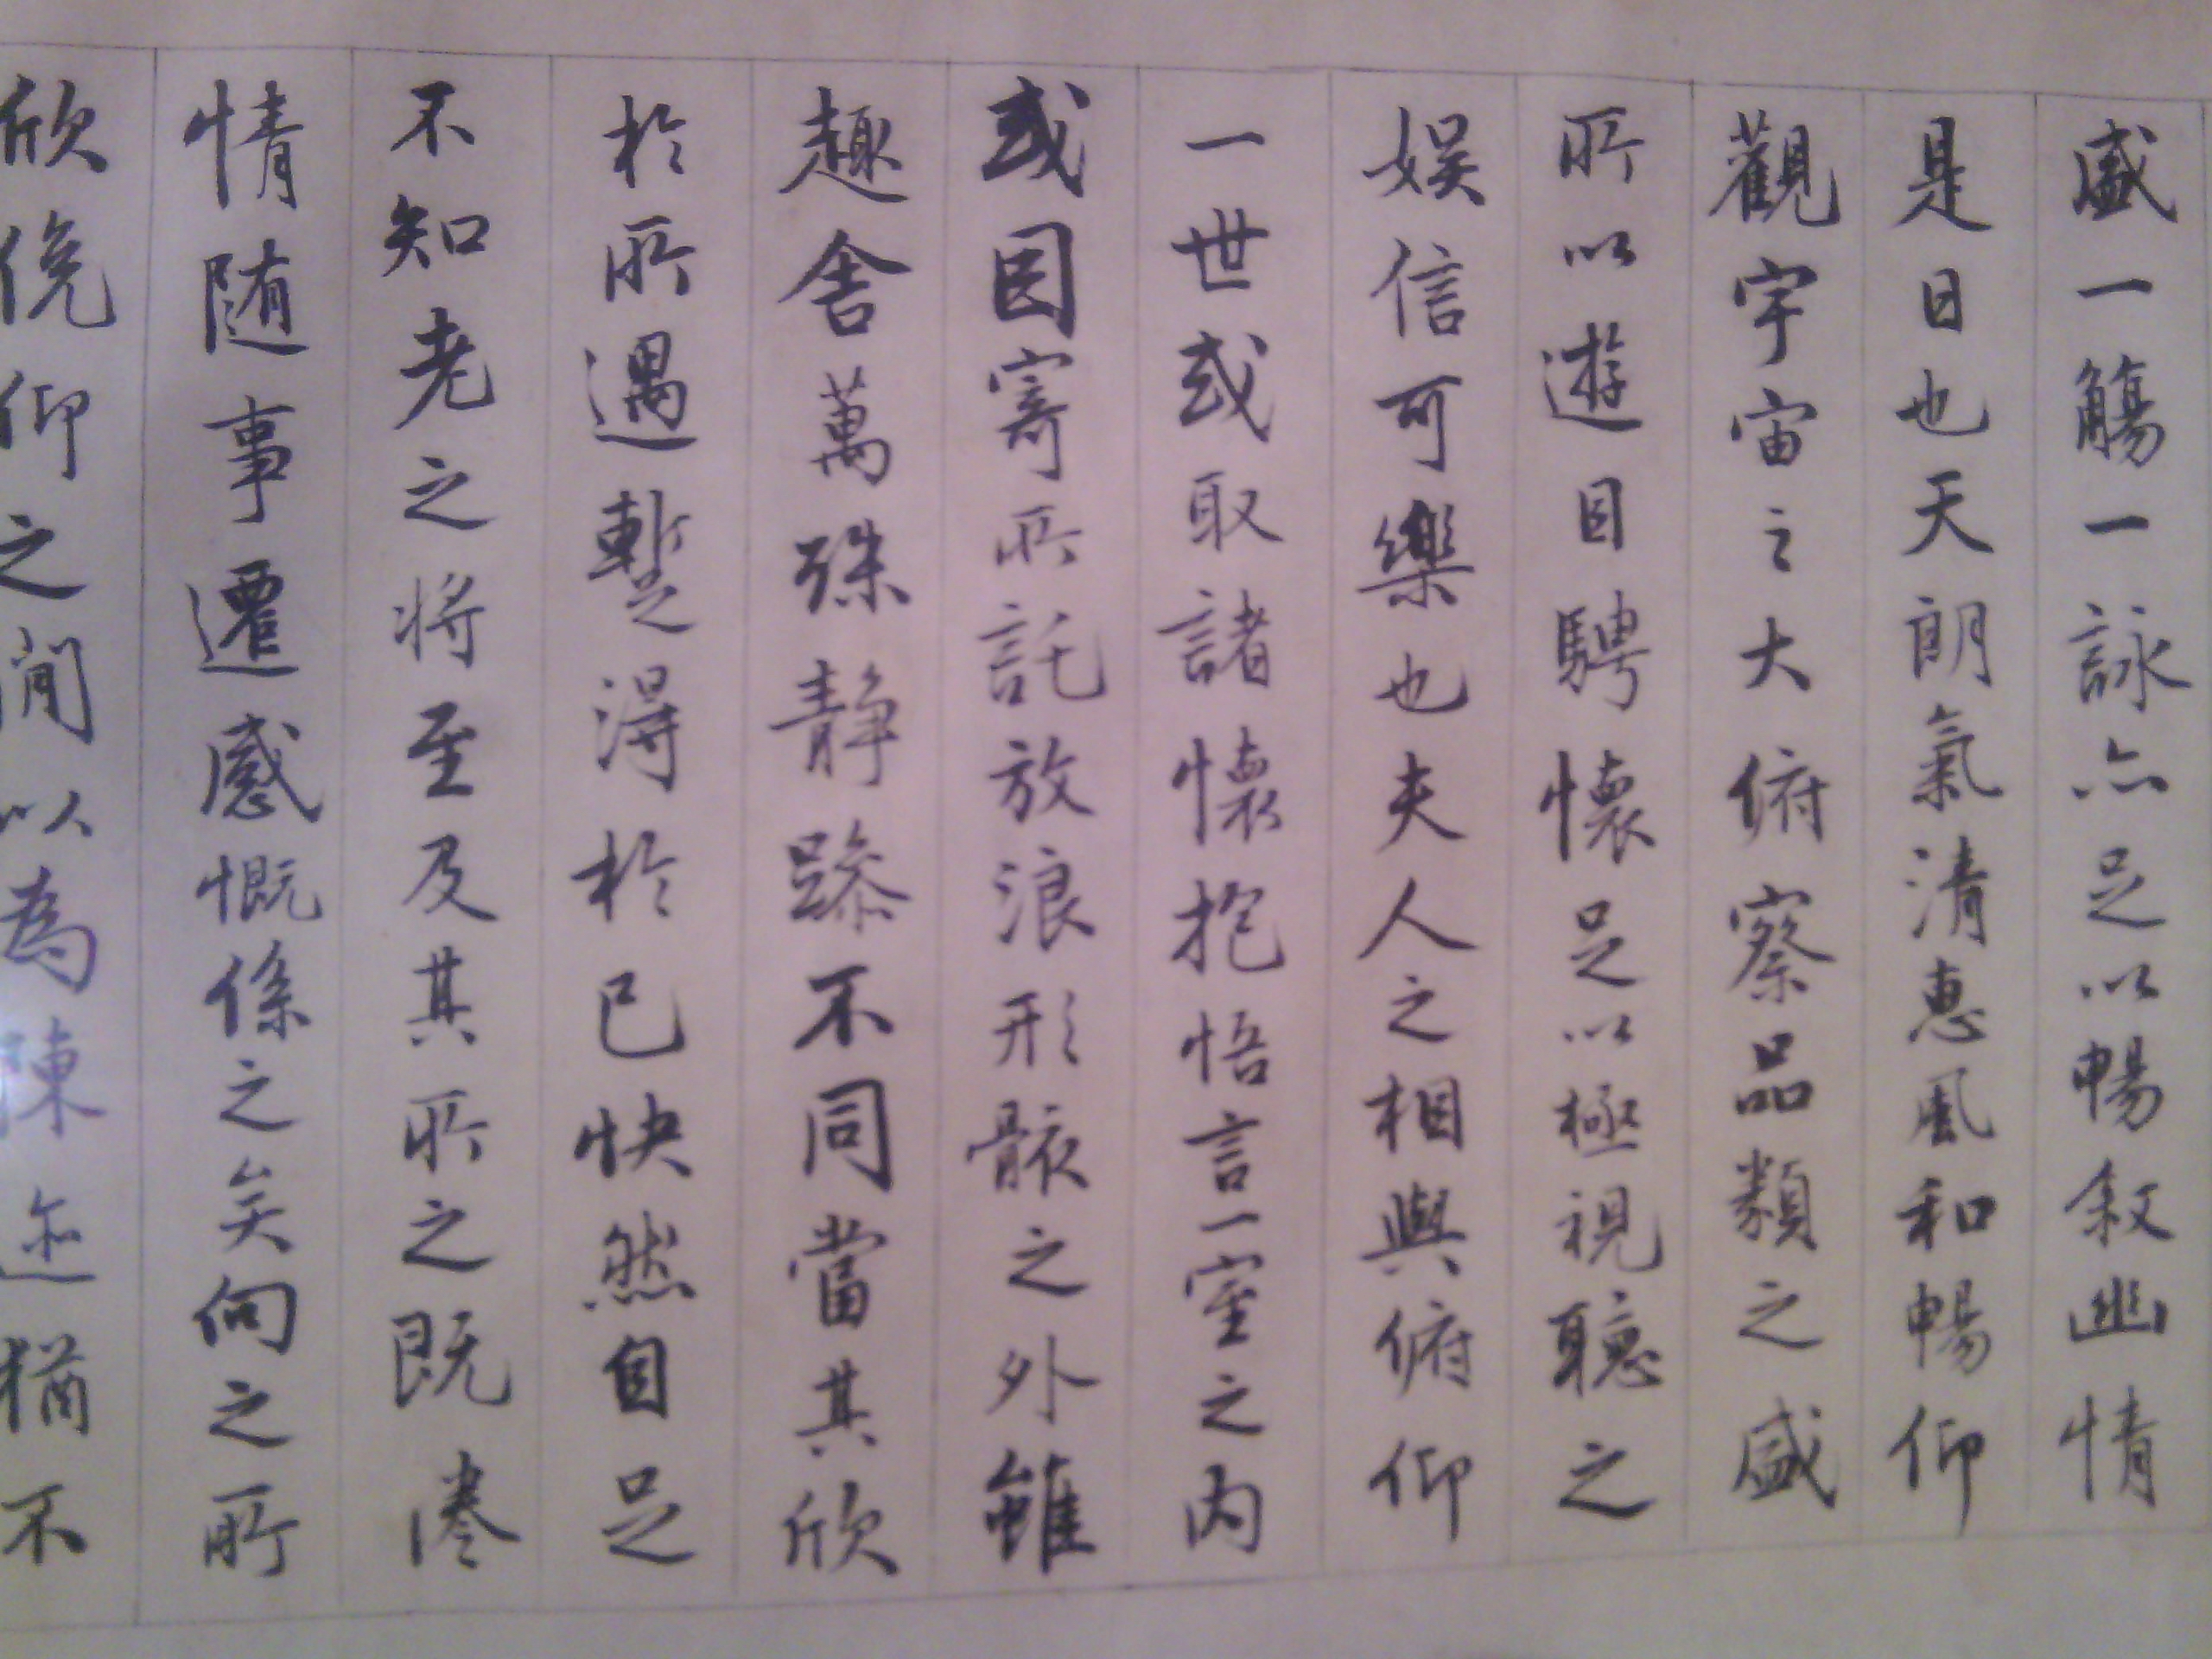 盛一觴一詠亦足以暢敘幽情
是日也天朗氣清惠風和暢仰
觀宇宙之大俯察品類之盛
所以遊目騁懷足以極視聽之
娛信可樂也夫人之相與俯仰
一世或取諸懷抱悟言一室之內
或因寄所託放浪形骸之外雖
趣舍萬殊静躁不同當其欣
於所遇暫得於己快然自足
不知老之将至及其所之既惓
情随事遷感慨係之矣向之所
欣俛仰之閒以為陳迹猶不